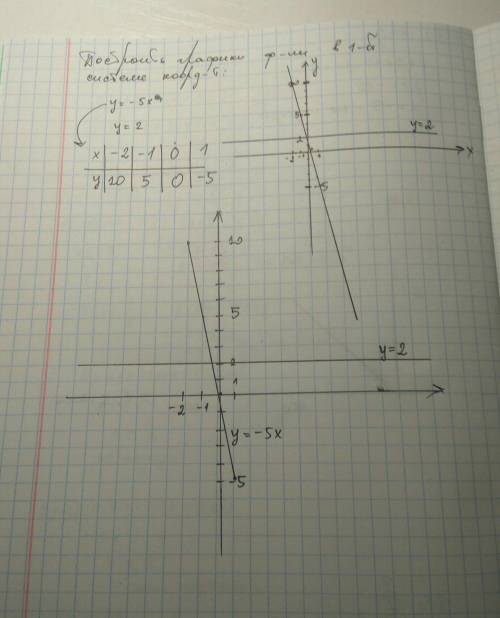 Построить графики ф-ии в 1-й
системе коорд-т:
y = -5x
y = 2
x | -2 | -1 | 0 | 1
y | 10 | 5 | 0 | -5
y
5
2
-2 -1
x
-5
y=2
10
5
2
1
-2 -1
y=2
y = -5x
-5